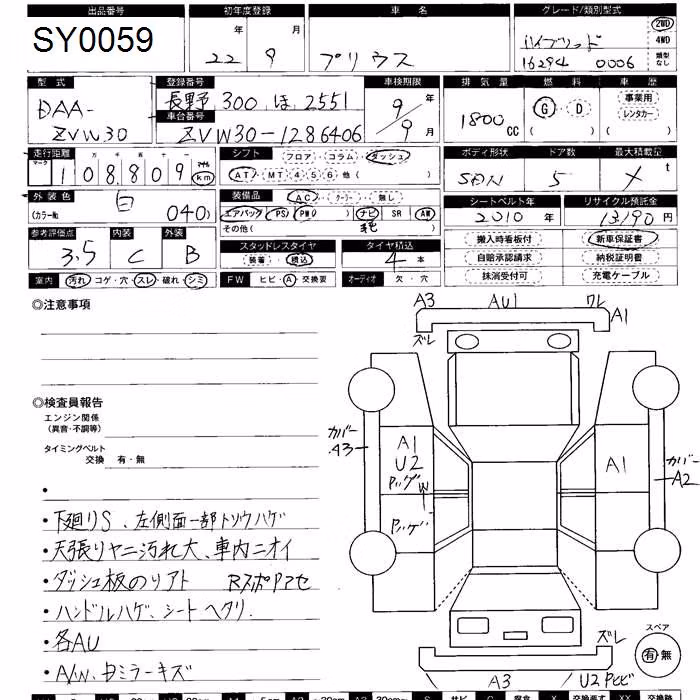 出品番号 初年度登録 車名 グレード/類別型式
SY0059 22年 9月 プリウス ハイブリッド 2WD 4WD
16294 0006 類型なし
型式 登録番号 車検期限 排気量 燃料 車歴
DAA-ZVW30 長野 300 ほ 2551 9年 9月 1800cc G D 事業用 レンタカー
車台番号 ZVW30-1286406
走行距離 シフト フロア コラム ダッシュ ボディ形状 ドア数 最大積載量
108809 マイル km AT MT 4 5 6 他 SDN 5 t
外装色 装備品 AC クーラー 無し シートベルト年 リサイクル預託金
白 (カラーNo 040) エアバッグ PS PW ナビ SR AW 2010年 13190円
その他
参考評価点 内装 外装 スタッドレスタイヤ タイヤ積込 搬入時看板付 新車保証書
3.5 C B 装着 積込 4本 自賠承認請求 納税証明書
室内 汚れ コゲ・穴 スレ 破れ シミ FW ヒビ・A 交換要 オーディオ 欠・穴 抹消受付可 充電ケーブル
◎注意事項
◎検査員報告
エンジン関係
(異音・不調等)
タイミングベルト
交換 有・無
・下廻りS、左側面一部トソウハゲ
・天張りヤニ汚れ大、車内ニオイ
・ダッシュ板のリアト
・ハンドルハゲ、シートヘタリ.
・各AU
・A/W、Dミラーキズ
A3 AU1 ワレ
ズレ A1
カバー A3
A1
U2
A1
カバー A2
W
ズレ
A3 U2
スペア
有 無